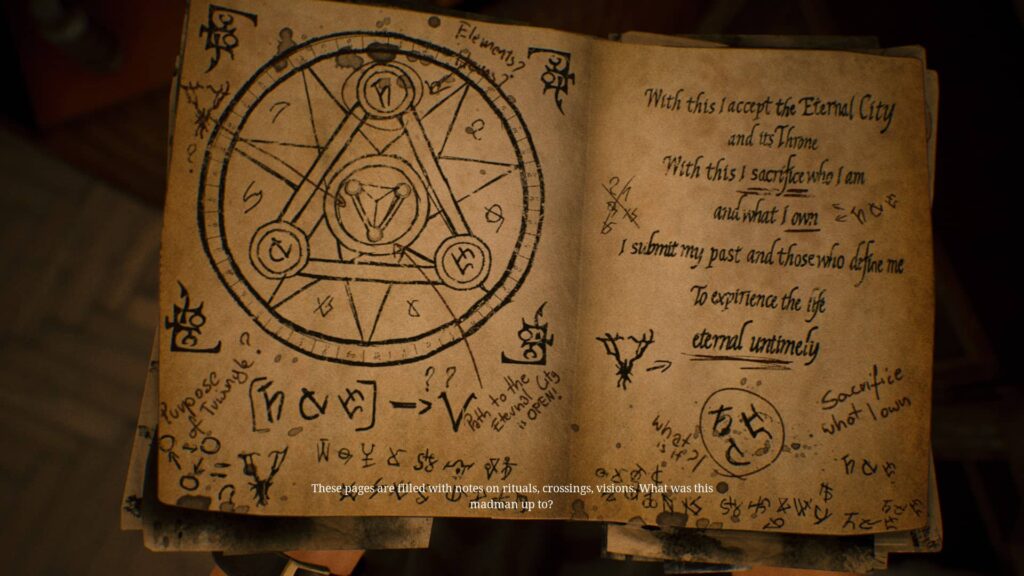 Elements?
? 
With this I accept the Eternal City
and its Throne
With this I sacrifice who I am
and what I own
I submit my past and those who define me
To expirience the life
eternal untimely
Purpose
of Triangle?
? ?
Path to the
Eternal City
is OPEN!
what
is it?
Sacrifice
what I own
These pages are filled with notes on rituals, crossings, visions. What was this
madman up to?